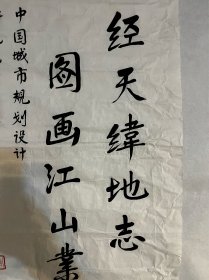 经天纬地志
图画江山業
中国城市规划设计